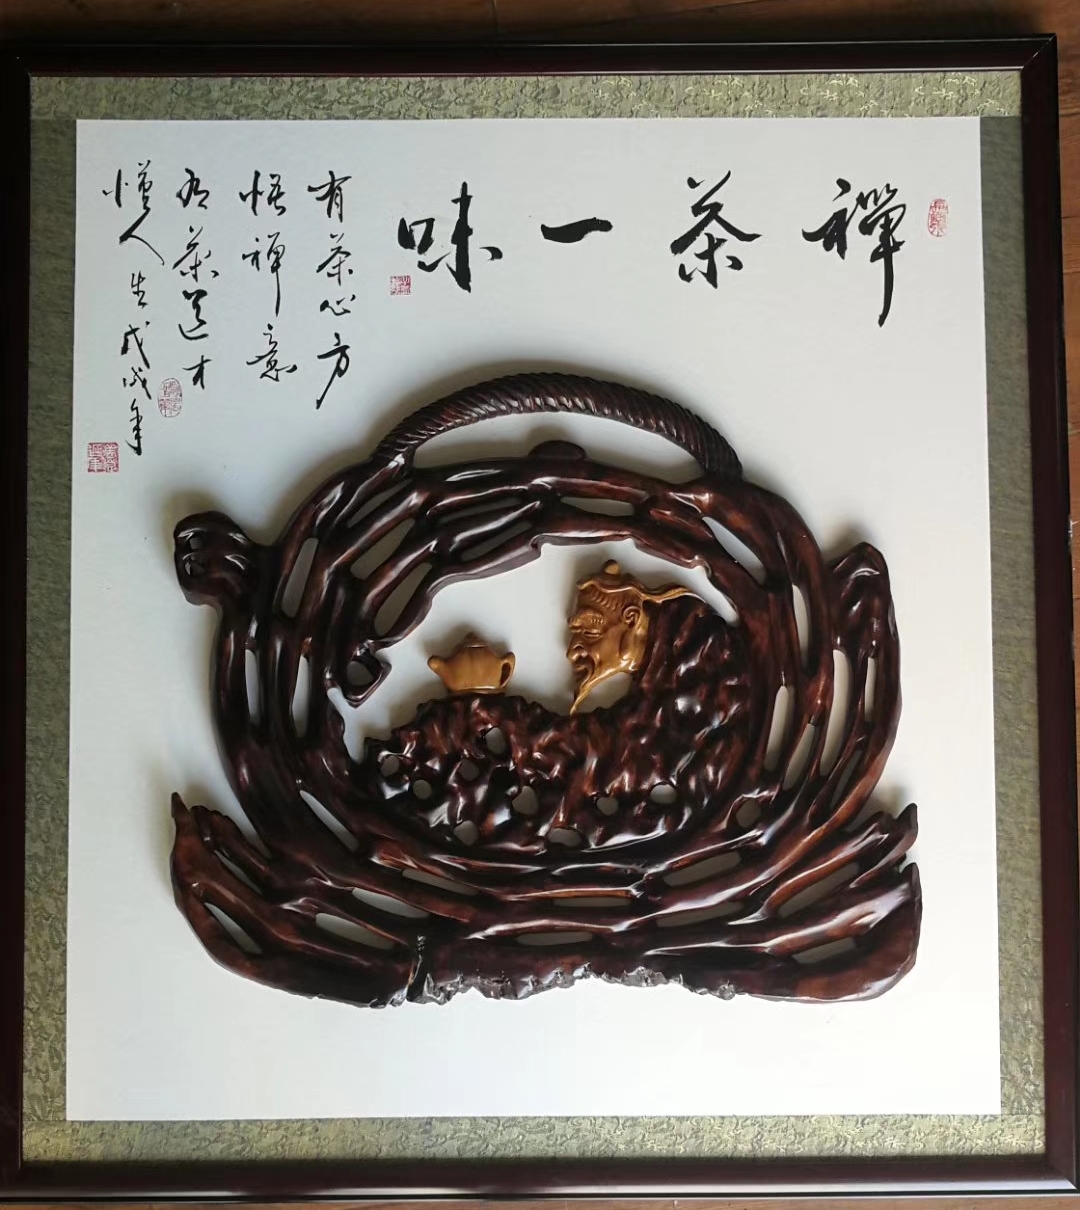 禪茶一味
有茶心方
悟禅意
茶道才
懂人生戊戌年